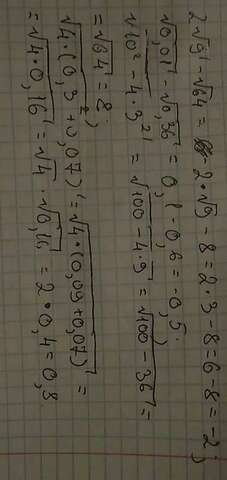 2√9 - √64 = 2·√9 - 8 = 2·3 - 8 = 6 - 8 = -2;
√0,01 - √0,36 = 0,1 - 0,6 = -0,5.
√10² - 4·3² = √100 - 4·9 = √100 - 36 =
= √64 = 8;
√4·(0,3² + 0,07) = √4·(0,09 + 0,07) =
= √4·0,16 = √4 · √0,16 = 2·0,4 = 0,8.